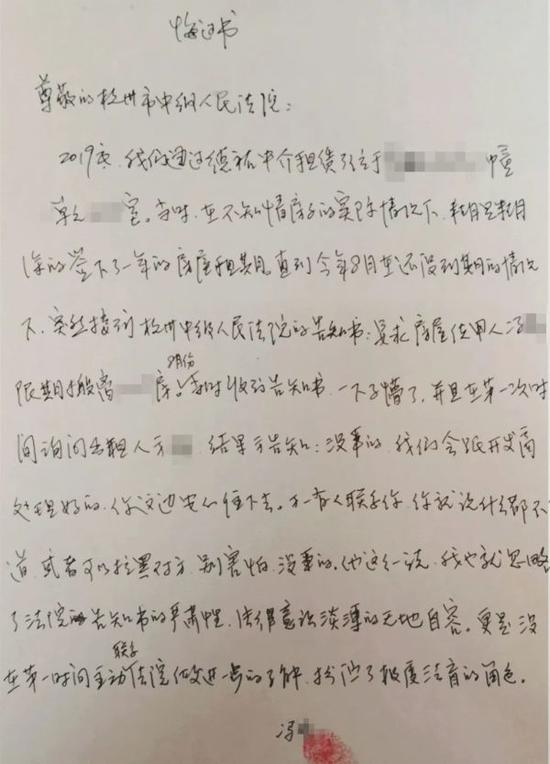 悔过书
尊敬的杭州市中级人民法院：
2019年，我们通过德祐中介租赁了位于 幢
单元 室。当时，在不知情房子的实际情况下，
的签下了一年的房屋租期，直到今年8月在还没到期的情况
下，突然接到杭州中级人民法院的告知书：要求房屋使用人冯
限期8月份搬离 房。当时收到告知书，一下子懵了，并且在第一次时
间询问出租人方 ，结果方告知：没事的，我们会跟开发商
处理好的，你这边安心住下去。万一有人联系你，你就说什么都不
道，或者可以拉黑对方，别害怕，没事的。他这么一说，我也就忽略
了法院的告知书的严肃性，法律意识淡薄的无地自容。更是没
在第一时间主动联系法院做进一步的了解，扮演了极度 的角色。
冯